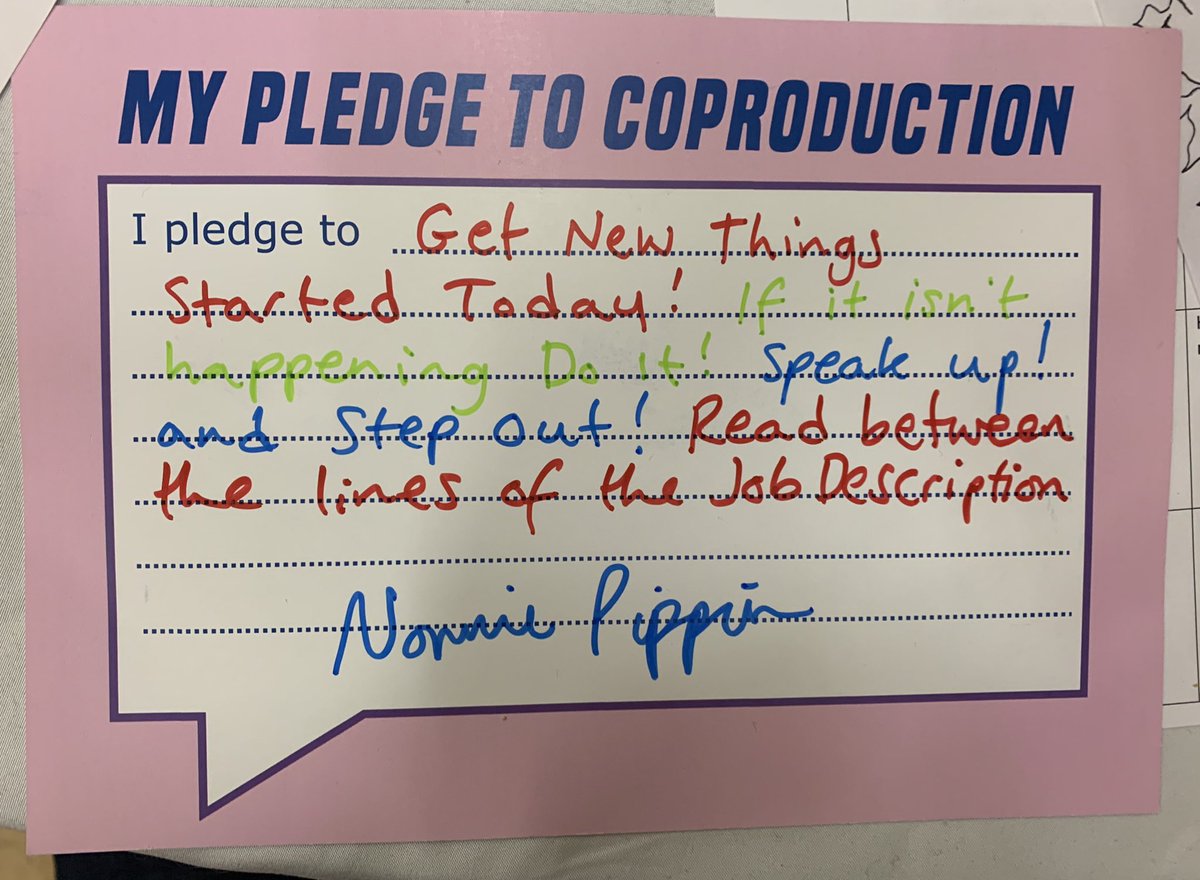 MY PLEDGE TO COPRODUCTION
I pledge to Get New Things
Started Today! If it isn't
happening Do it! Speak up!
and Step out! Read between
the lines of the Job Description
Pippin